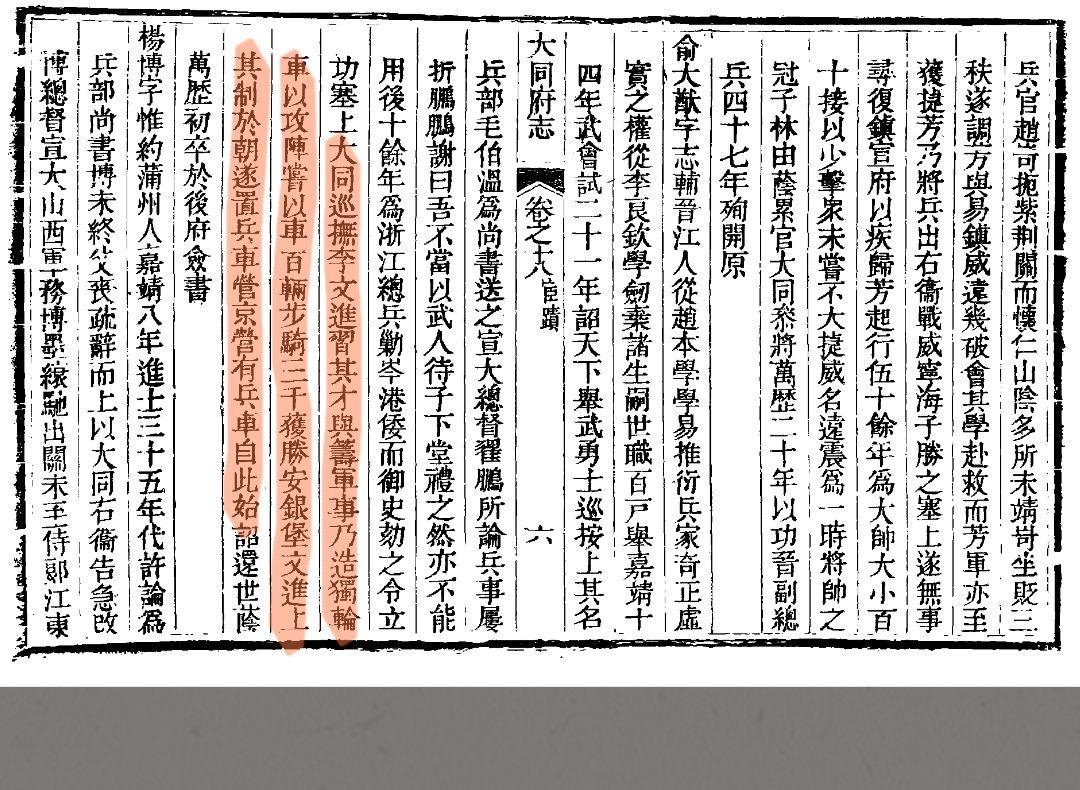 兵官趙苛扼紫荆關而懐仁山陰多所未靖岢坐貶三
秩遂調芳與易鎮威遠幾破會其學赴救而芳軍亦至
獲捷芳乃將兵出右衞戰威寧海子勝之塞上遂無事
尋復鎮宣府以疾歸芳起行伍十餘年爲大帥大小百
十接以少擊衆未嘗不大捷威名遠震爲一時將帥之
冠子林由蔭累官大同叅將萬歷二十年以功晉副總
兵四十七年殉開原
俞大猷字志輔晉江人從趙本學學易推衍兵家奇正虛
實之權從李良欽學劒棄諸生嗣世職百戸舉嘉靖十
四年武會試二十一年詔天下舉武勇士巡按上其名
大同府志 卷之十八宦蹟 六
兵部毛伯溫爲尚書送之宣大總督翟鵬所論兵事屢
折鵬鵬謝曰吾不當以武人待子下堂禮之然亦不能
用後十餘年爲浙江總兵勦岑港倭而御史劾之令立
功塞上大同巡撫李文進習其才與籌軍事乃造獨輪
車以攻陣嘗以車百輛步騎三千獲勝安銀堡文進上
其制於朝遂置兵車營京營有兵車自此始詔還世蔭
萬歷初卒於後府僉書
楊博字惟約蒲州人嘉靖八年進士三十五年代許論爲
兵部尚書博未終父喪疏辭而上以大同右衞告急改
博總督宣大山西軍務博墨縗馳出關未至侍郞江東